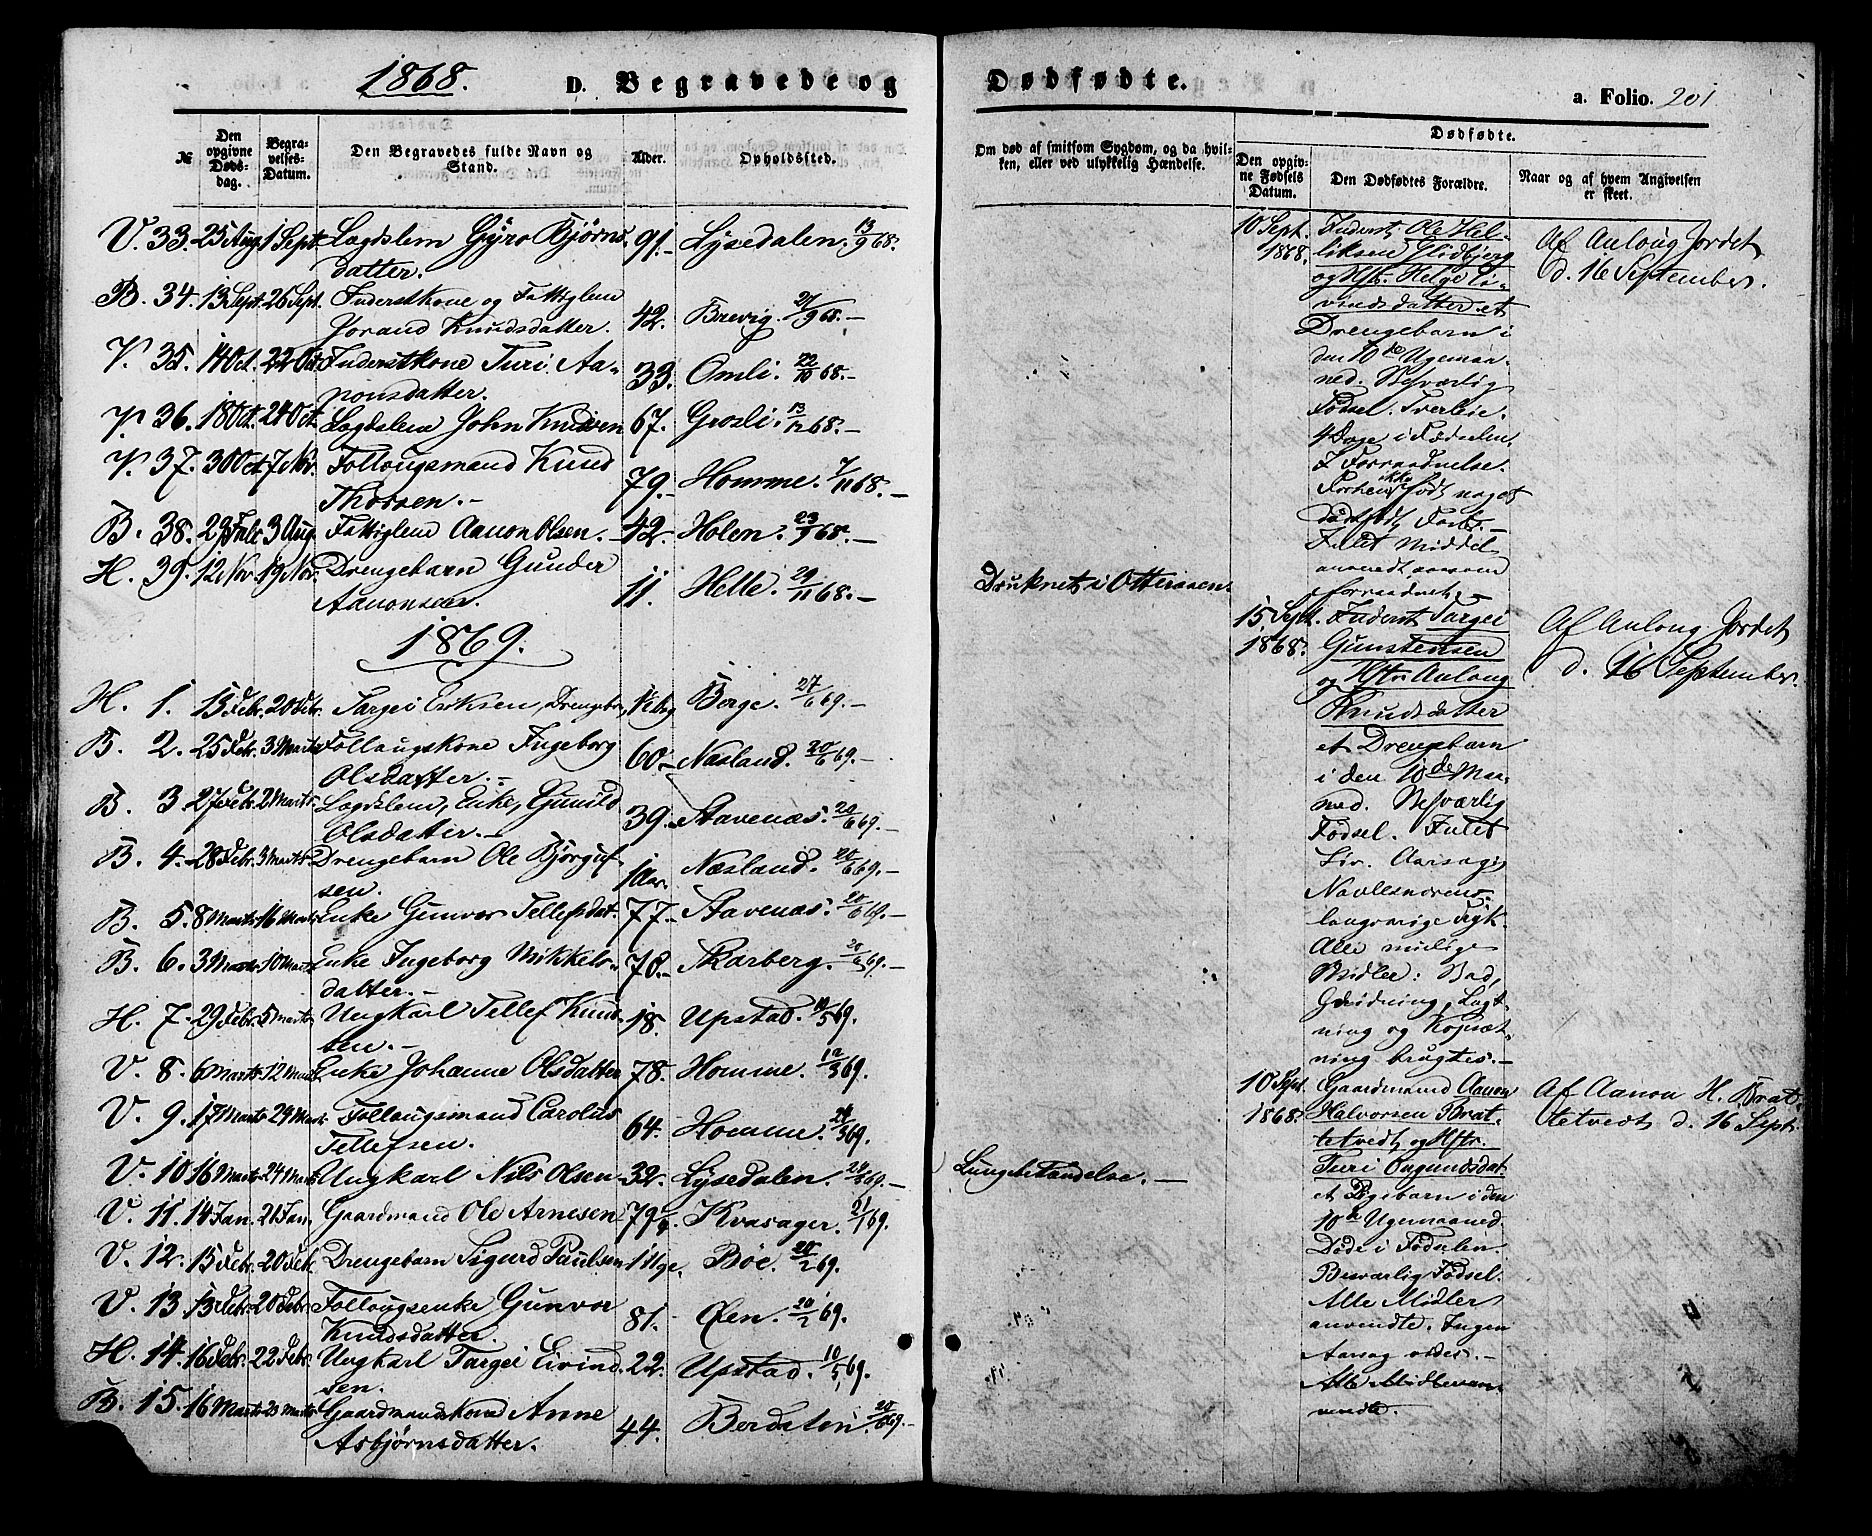 1868. D. Begravede og
№
Den opgivne Døds-dag.
Begra-velses-Datum.
Den Begravedes fulde Navn og Stand.
Alder.
Opholdssted.
V. 33. 25 Aug. 1 Sept. Lægdslem Gyro Bjørns- 91.- Lysedalen. 13/9 68.
datter.
B. 34. 13 Sept. 26 Sept. Inderstkone og Fattiglem
Jorand Knudsdatter. 42. Brevig. 27/9 68.-
V. 35. 14 Oct. 22 Oct. Inderstkone Turi Aa-
nonsdatter. 33. Omli. 22/10 68.-
V. 36. 18 Oct. 24 Oct. Lægdslem John Knudsen 67. Grosli. 13/12 68.-
V. 37. 30 Oct. 7 Nv. Follougsmand Knud
Thorsen.- 79.- Homme. 7/11 68.-
B. 38. 23 Juli 3 Aug. Fattiglem Aanon Olsen.- 42. Holen. 23/9 68.-
H. 39. 12 Nov. 19 Nov. Drengebarn Gunder
Aanonsen. 11. Helle. 29/11 68.-
1869.
H. 1. 15 Febr. 20 Febr. Targei Eriksen, Drengebn. Berge. 27/6 69.-
B. 2. 25 Febr. 3 Marts Follougskone Ingeborg
Olsdatter.- 60.- Næsland. 20/6 69.-
B. 3. 27 Febr. 2 Marts Lægdslem, Enke, Gunild
Olsdatter.- 39. Stavenæs. 20/6 69.-
B. 4. 28 Febr. 3 Marts Drengebarn Ole Bjørguf-
sen. 1 Aar. Næsland. 20/6 69.-
B. 5. 8 Marts 16 Marts Enke Gunvor Tellefsdat. 77.- Stavenæs. 20/6 69.-
B. 6. 3 Marts 10 Marts Enke Ingeborg Mikkels-
datter.- 78.- Skarberg. 20/6 69.-
H. 7. 29 Febr. 5 Marts Ungkarl Tellef Knud-
sen.- 18. Upstad. 10/5 69.
V. 8. 6 Marts 12 Marts Enke Johanne Olsdatter 78. Homme. 12/3 69.
V. 9. 17 Marts 24 Marts Follougsmand Carolus
Tellefsen. 64. Homme. 24/3 69.
V. 10. 16 Marts 24 Marts Ungkarl Nils Olsen- 32. Lysedalen. 24/3 69.-
V. 11. 14 Jan. 21 Jan. Gaardmand Ole Arnesen 79 Kvasager. 21/1 69.
V. 12. 15 Febr. 20 Febr. Drengebarn Sigurd Paulsen Bøe. 20/2 69.
V. 13. 13 Febr. 20 Febr. Follougsenke Gunvor
Knudsdatter. 81. Øen. 20/2 69.
H. 14. 16 Febr. 22 Febr. Ungkarl Targei Eivind-
sen. 22. Upstad. 10/5 69.
B. 15. 16 Marts 23 Marts Gaardmandskone Anne
Asbjørnsdatter. 44. Berdalen. 20/6 69.-
Dødfødte. a. Folio. 201
Om død af smitsom Sygdom, og da hvil-
ken, eller ved ulykkelig Hændelse.
Dødfødte.
Den opgiv-ne Fødsels Datum.
Den Dødfødtes Forældre.
Naar og af hvem Angivelsen er skeet.
Druknet i Otteraaen.
Lungebetændelse.-
10 Sept. 1868.
Inderst Ole Hel-
liksen Lidbjerg
og Hstr. Helge Ei-
vindsdatter et
Drengebarn i
den 10de Ugemaa-
ned. Besværlig
Fødsel. Tverleie.
4 Dage i Fødselen.
I Forraadnelse.
Forhen ikke født noget
dødfødt Foster.-
Intet Middel
anvendt, saasom
forraadnet.-
Af Aaloug Jordet
d. 16 September.
15 Sept. 1868.
Inderst Targei
Gunstensen
og Hstr. Aaloug
Knudsdatter
et Drengebarn
i den 10de Maa-
ned. Besværlig
Fødsel. Intet
Liv. Aarsag:
Navlesnorens
langvarige Tryk
Alle mulige
Midler: Bad,
Gnidning, Lugt-
ning og Kopsæt-
ning brugtes.-
Af Aaloug Jordet
d. 16 September.
10 Sept. 1868.
Gaardmand Aanon
Halvorsen Brat-
tetvedt og Hstr.
Turi Ongundsdat.
et Pigebarn i den
10de Ugemaaned.
Døde i Fødselen.
Besværlig Fødsel.
Alle Midler
anvendte. Ingen
Aarsag vides.-
Alle Midler an-
vendte.-
Af Aanon H. Brat-
tetvedt d. 16 Sept.